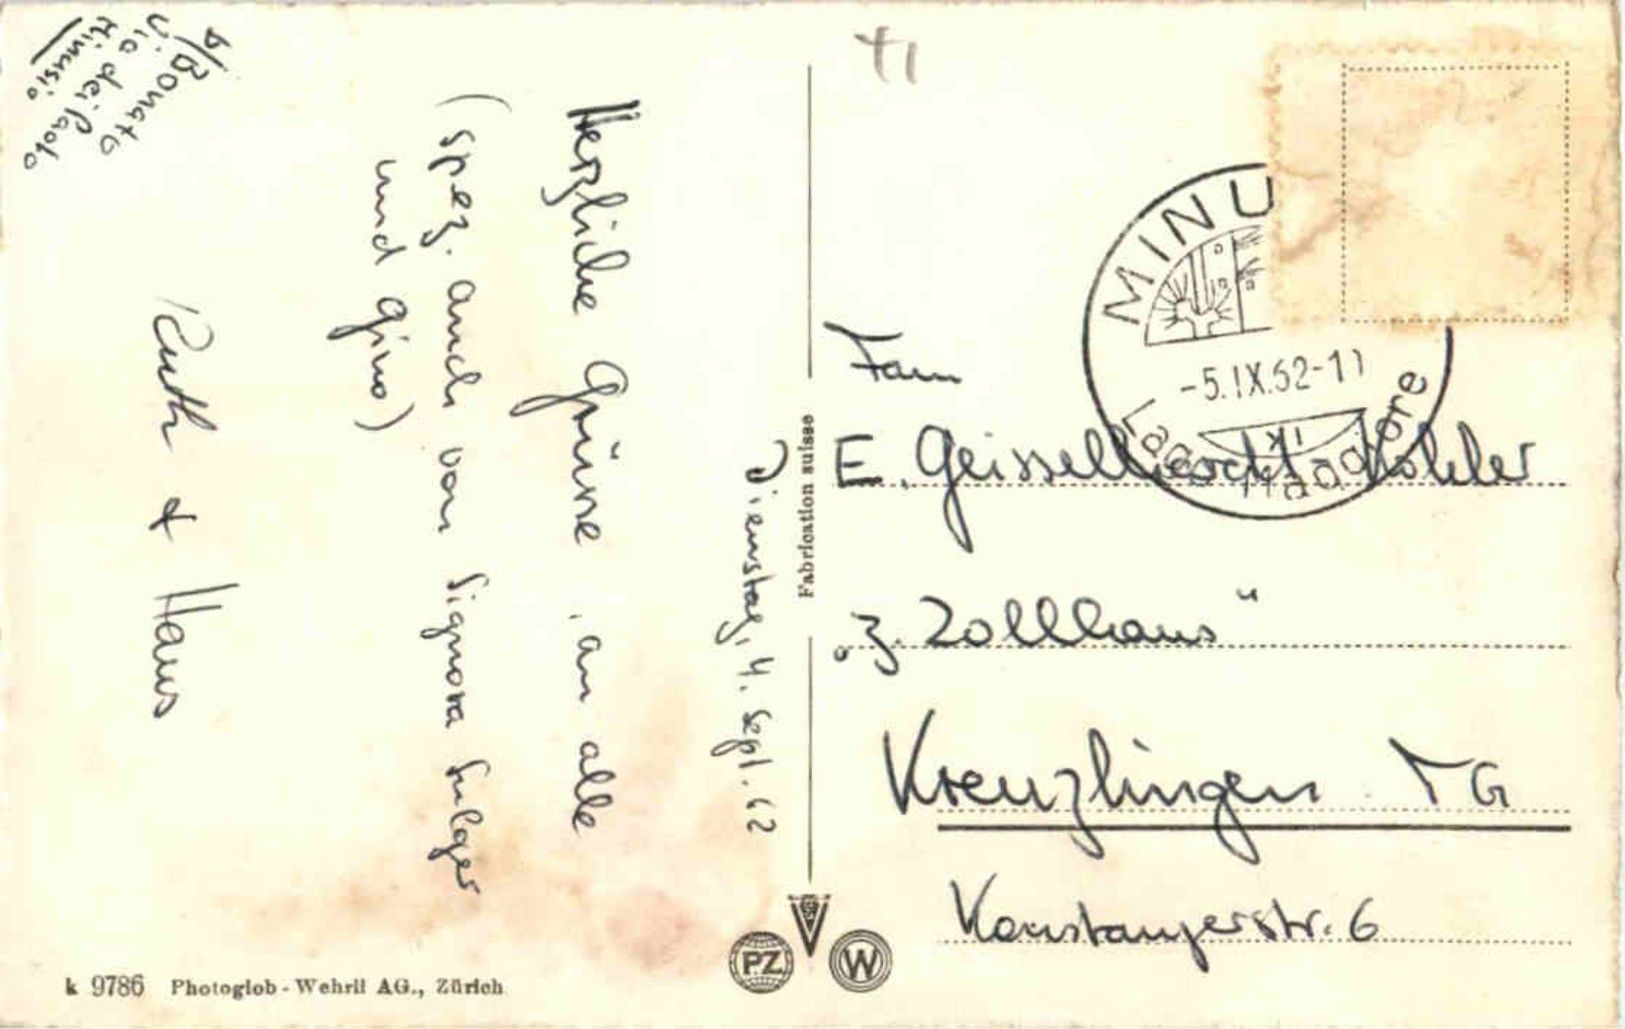 b/Bonato
Via dei Paolo
Minusio
Dienstag, 4. Sept. 62
Herzliche Grüsse, an alle
(spez. auch von Signora Sulger
und Gino)
Ruth & Hans
Fabrication suisse
TI
MINU
-5.IX.62-11
Lago Maggiore
Fam
E. Geisselbrecht-Kohler
"z. Zollhaus"
Kreuzlingen TG
Konstanzerstr. 6
PZ
W
k 9786 Photoglob-Wehrli AG., Zürich